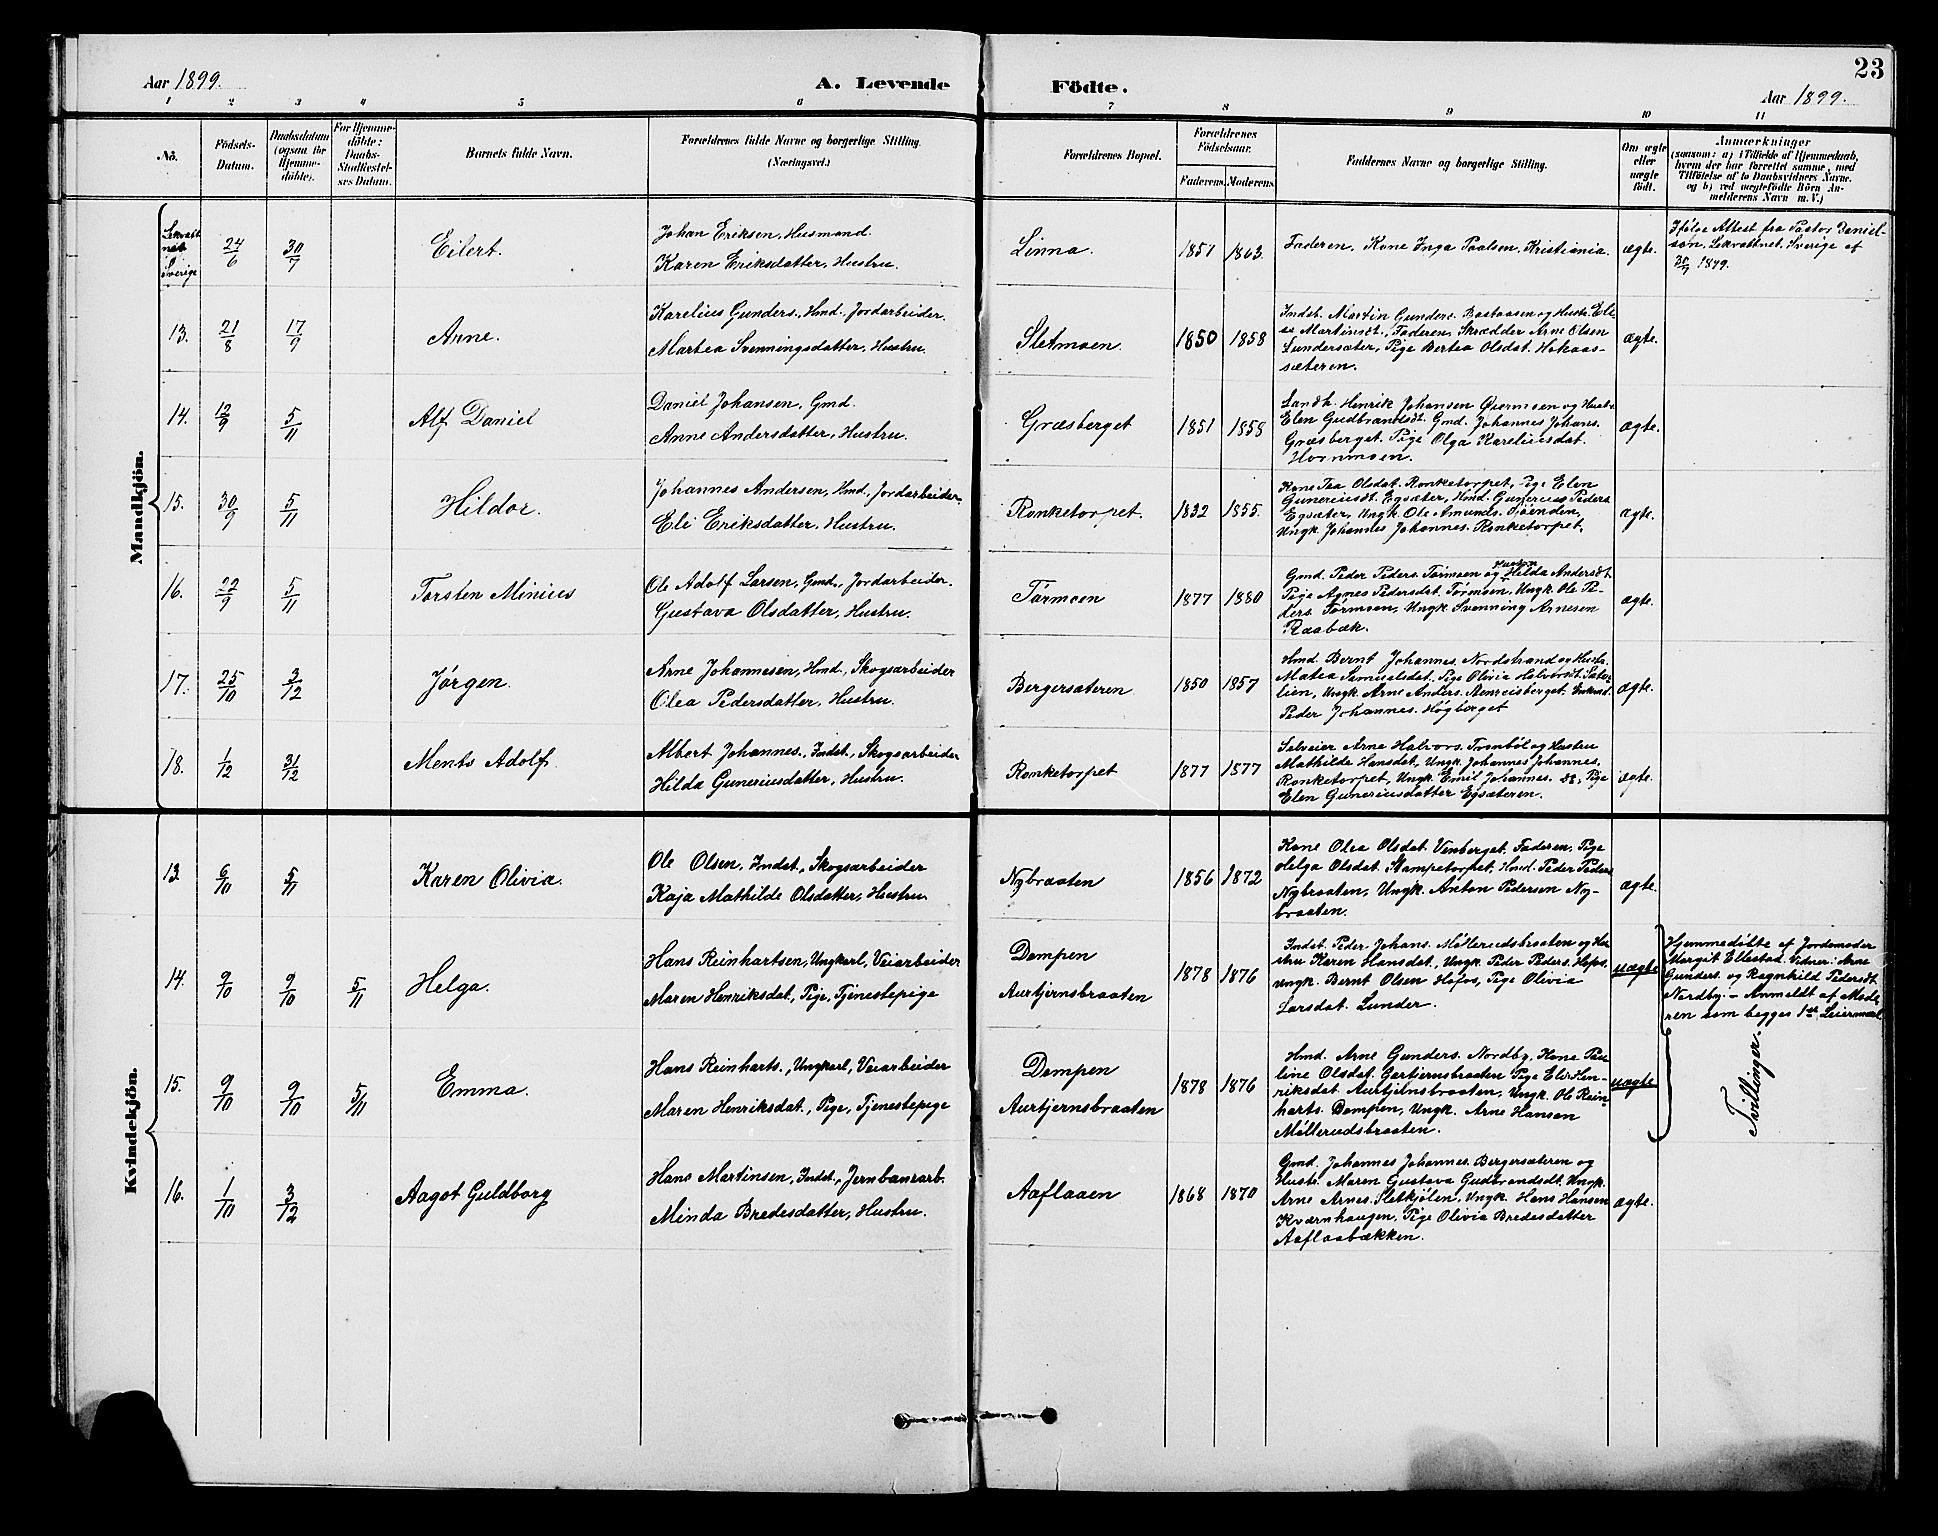 23
Aar 1899.
A. Levende Födte.
Aar 1899.
1 2 3 4 5 6 7 8 9 10 11
No.
Födsels-Datum.
Daabsdatum (ogsaa for Hjemme-döbte).
For Hjemme-döbte: Daabs-Stadfæstel-ses Datum.
Barnets fulde Navn.
Forældrenes fulde Navne og borgerlige Stilling.
(Næringsvei.)
Forældrenes Bopæl.
Forældrenes Födselsaar.
Faderens. Moderens.
Faddernes Navne og borgerlige Stilling.
Om ægte eller uægte födt.
Anmærkninger
(saasom: a) i Tilfælde af Hjemmedaab,
hvem der har forrettet samme, med
Tilföielse af to Daabsvidners Navne.
og b) ved uægtefödte Börn An-
melderens Navn m. V.)
Mandkjön.
Lekvatt-
net
Sverige
24/6 30/7 Eilert.
Johan Eriksen, Husmand
Karen Eriksdatter, Hustru.
Linna. 1851 1863.
Faderen, Kone Inga Paalsen, Kristiania.
ægte.
Ifølge Attest fra Pastor Daniel-
son, Lekvattnet, Sverige af
30/9 1899.
13. 21/8 17/9 Anne.
Karelius Gunders., Hmd., Jordarbeider.
Martea Svenningsdatter, Hustru.
Sletmoen. 1850 1858
Indst. Martin Gunders. Bastaasen og Hustr. Eli-
se Martinsdt., Faderen, Skrædder Arne Olsen
Lundersæter, Pige Bertea Olsdat. Hokaas-
sæteren.
ægte.
14. 12/9 5/11 Alf Daniel
Daniel Johansen, Gmd.
Anne Andersdatter, Hustru.
Græsberget 1851 1858
Landh. Henrik Johansen Øiermoen og Hustr.
Elen Gudbrandsdt. Gmd. Johannes Johans.
Græsberget. Pige Olga Kareliusdat.
Hornmoen.
ægte.
15. 30/9 5/11 Hildor.
Johannes Andersen, Hmd., Jordarbeider.
Eli Eriksdatter, Hustru.
Ronketorpet. 1832 1855.
Kone Tea Olsdat. Ronketorpet, Pige Elen
Guneriusdt. Egsæter, Hmd. Gunerius Peders.
Egsæter, Ungk. Ole Amunds. Sjøenden,
Ungk. Johannes Johannes. Ronketorpet.
ægte.
16. 22/9 5/11 Torsten Minius
Ole Adolf Larsen, Gmd., Jordarbeider.
Gustava Olsdatter, Hustru.
Tørmoen 1877 1880
Hustru
Gmd. Peder Peders. Tørmoen og Hilda Andersdt.
Pige Agnes Pedersdat. Tørmoen, Ungk. Ole Pe-
ders. Tørmoen, Ungk. Svenning Arnesen
Raabæk.
ægte.
17. 25/10 3/12 Jørgen.
Arne Johannesen, Hmd., Skogsarbeider
Olea Pedersdatter, Hustru.
Bergersæteren. 1850 1857
Hmd. Bernt Johannes. Nordstrand og Hustr.
Matea Samuelsdat. Pige Olivia Halvorsdt. Sæter-
lien, Ungk. Arne Anders.
Peder Johannes. Høgberget
ægte.
18. 1/12 31/12 Ments Adolf.
Albert Johannes., Indst., Skogsarbeider
Hilda Guneriusdatter, Hustru.
Ronketorpet 1877 1877
Selveier Arne Halvors. Trønbøl og Hustru
Mathilde Hansdat., Ungk. Johannes Johannes.
Ronketorpet, Ungk. Emil Johannes. Pige
Elen Guneriusdatter Egsæteren.
ægte.
Kvindekjön.
13. 6/10 5/11 Karen Olivia.
Ole Olsen, Indst., Skogsarbeider
Kaja Mathilde Olsdatter, Hustru
Nybraaten 1856 1872
Kone Olea Olsdat. Venberget, Faderen, Pige
Helga Olsdat. Stampetorpet, Hmd. Peder Peders.
Nybraaten, Ungk. Anton Pedersen Ny-
braaten.
ægte.
14. 9/10 9/10 5/11 Helga.
Hans Reinhartsen, Ungkarl, Veiarbeider
Maren Henriksdat., Pige, Tjenestepige
Dompen
Aurtjernsbraaten
1878 1876
Indst. Peder Johans. Møllerudsbraaten og Hu-
stru Karen Hansdat., Ungk. Peder Peders. Hofos,
Ungk. Bernt Olsen Hofos, Pige Olivia
Larsdat. Lunder.
uægte
Hjemmedøbte af Jordemoder
Margit Ellestad. Vidner: Arne
Gunders. og Ragnhild Pedersdt.
Nordby. – Anmeldt af Mode-
ren som begges 1ste Leiermaal
15. 9/10 9/10 5/11 Emma.
Hans Reinharts., Ungkarl, Veiarbeider
Maren Henriksdat., Pige, Tjenestepige
Dompen
Aurtjernsbraaten
1878 1876
Hmd. Arne Gunders. Nordby, Kone Pau-
line Olsdat. Gørtjernsbraaten Pige Elis Hen-
riksdat. Aurtjernsbraaten, Ungk. Ole Rein-
harts. Dompen, Ungk. Arne Hansen
Møllerudsbraaten.
uægte
Tvillinger.
16. 1/10 3/12 Aagot Guldborg
Hans Martinsen, Indst., Jernbanearb.
Minda Bredesdatter, Hustru.
Aaflaaen 1868 1870
Gmd. Johannes Johannes. Bergersæteren og
Hustr. Maren Gustava Gudbrandsdt. Ungk.
Arne Arnes. Sletkjølen, Ungk. Hans Hansen
Kværnhaugen, Pige Olivia Bredesdatter
Aaflaabækken.
ægte.